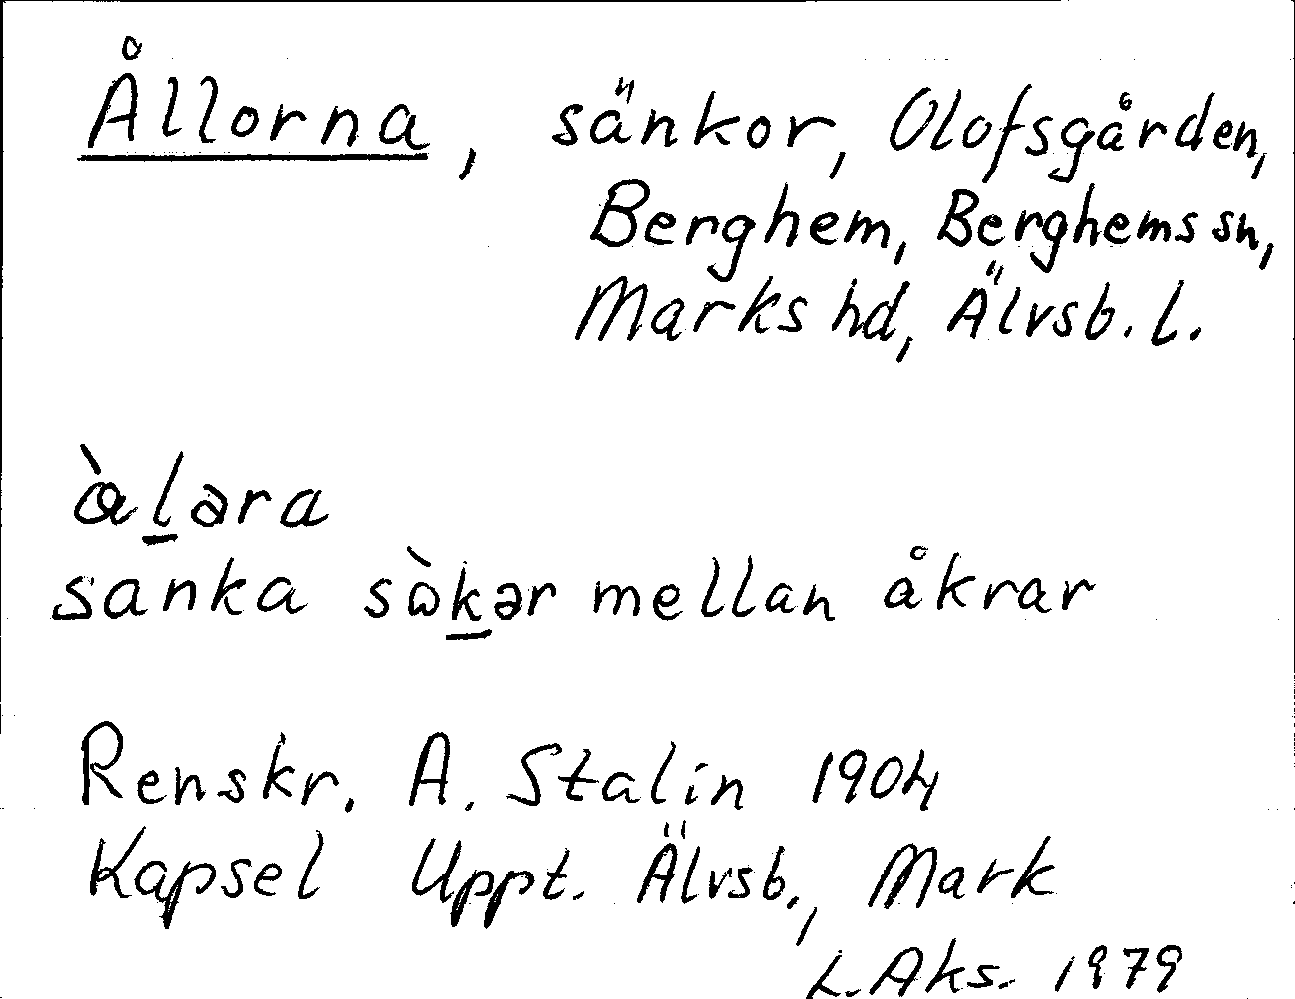 Ållorna, sänkor, Olofsgården,
Berghem, Berghems sn,
Marks hd, Älvsb. l.
ὰl̲əra
sanka sὼk̲ər mellan åkrar
Renskr. A. Stalin 1904
Kapsel Uppt. Älvsb., Mark
L. Aks. 1979